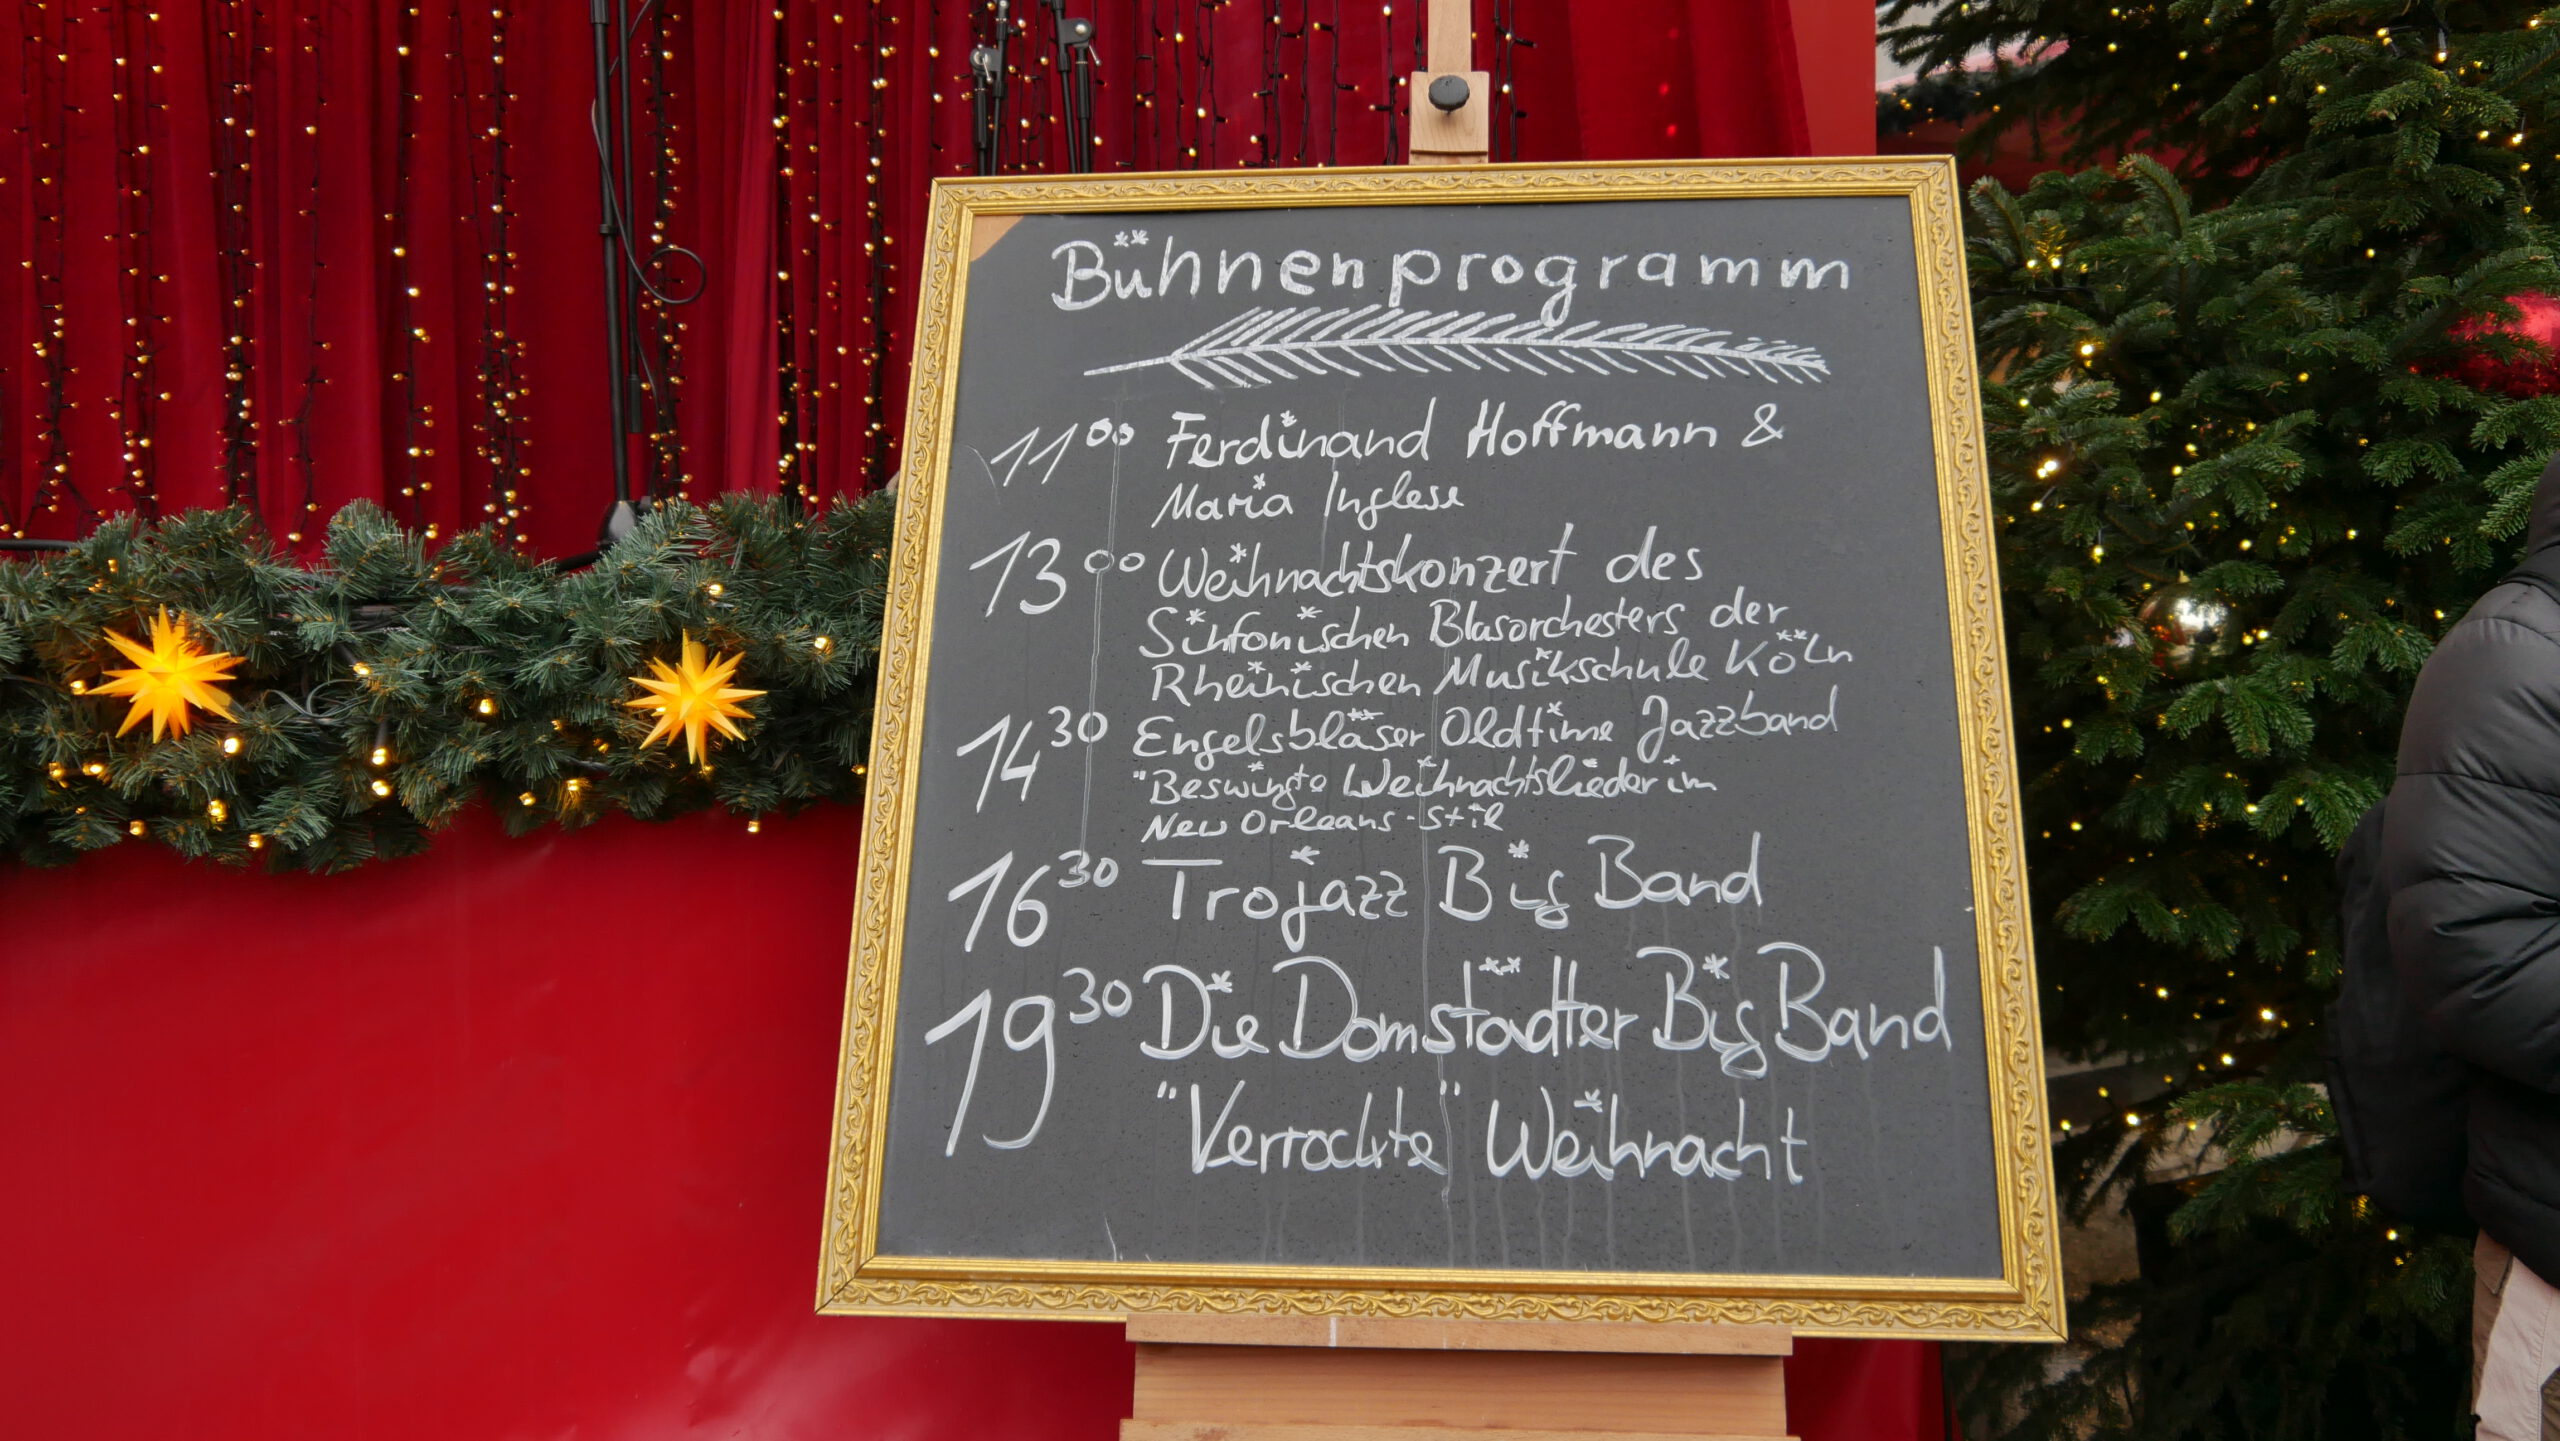 Bühnenprogramm
11⁰⁰ Ferdinand Hoffmann &
Maria Inglese
13⁰⁰ Weihnachtskonzert des
Sinfonischen Blasorchesters der
Rheinischen Musikschule Köln
14³⁰ Engelsbläser Oldtime Jazzband
"Beswingte Weihnachtslieder im
New Orleans-Stil
16³⁰ Trojazz Big Band
19³⁰ Die Domstädter Big Band
"Verrockte" Weihnacht